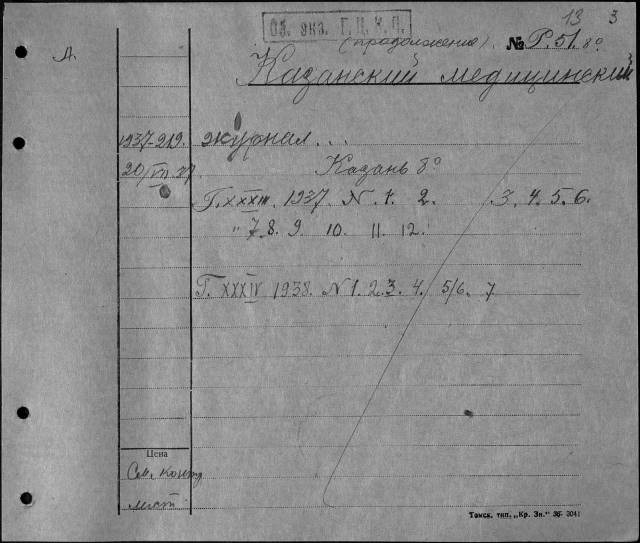 13 3
Об. экз. Г. Ц. К. П.
(продолжение). № Р. 51. 8°
А.
Казанский медицинский
1937-219 журнал...
20/VII 37 Казань 8°
Г. XXXIII. 1937. N. 1. 2. 3. 4. 5. 6.
" 7. 8. 9. 10. 11. 12.
Г. XXXIV 1938. N 1. 2. 3. 4. 5/6. 7
Цена
См. контр.
лист
Томск. тип. „Кр. Зн.“ 36-3041